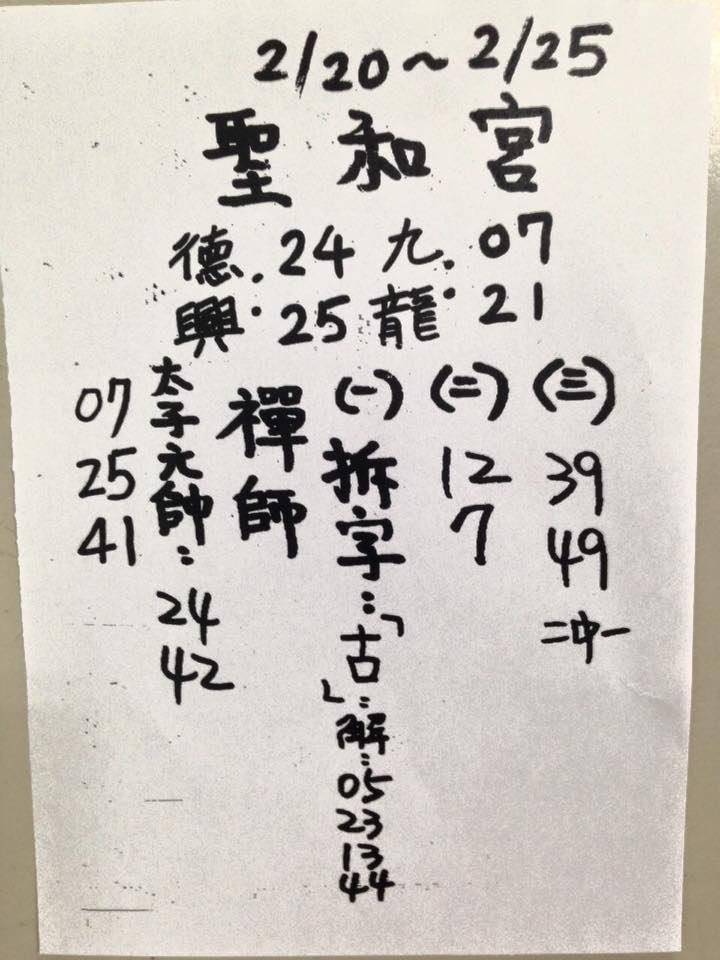 2/20~2/25
聖和宮
德. 24 九. 07
興. 25 龍. 21
(三)
39
49
二中一
(二)
12
7
(一)
拆字:「古」:解:
05
23
13
44
禪師
太子元帥:
24
42
07
25
41